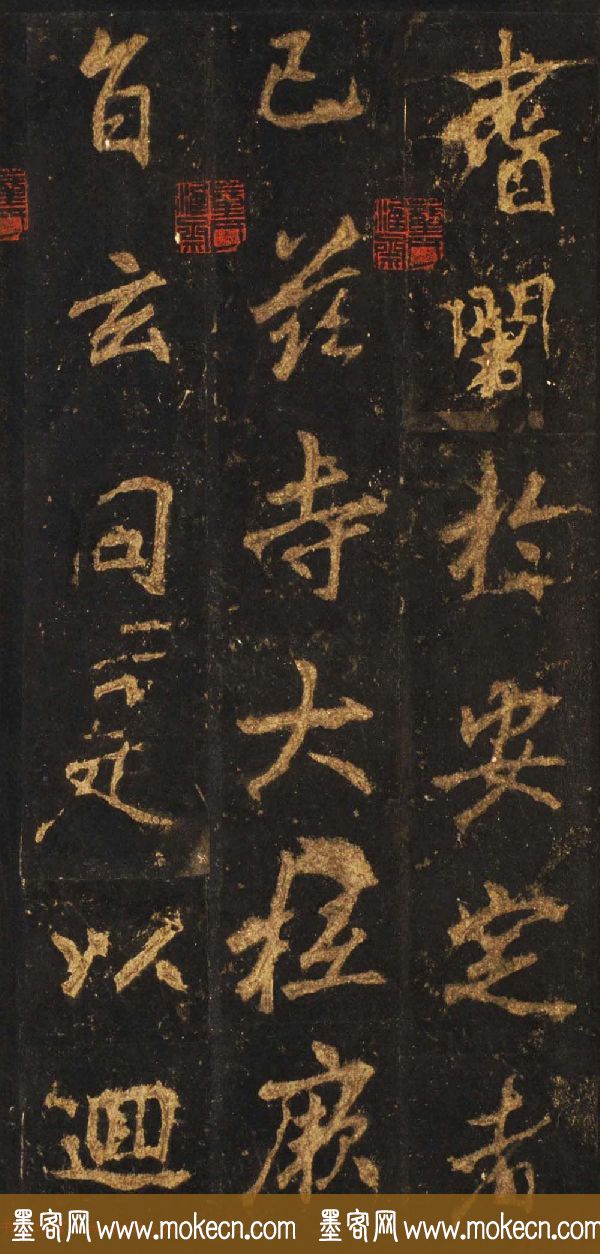 耆闍於安定者
已茲寺大柢厥
旨玄同是以迴
墨客网 www.mokecn.com 墨客网 www.mokecn.com